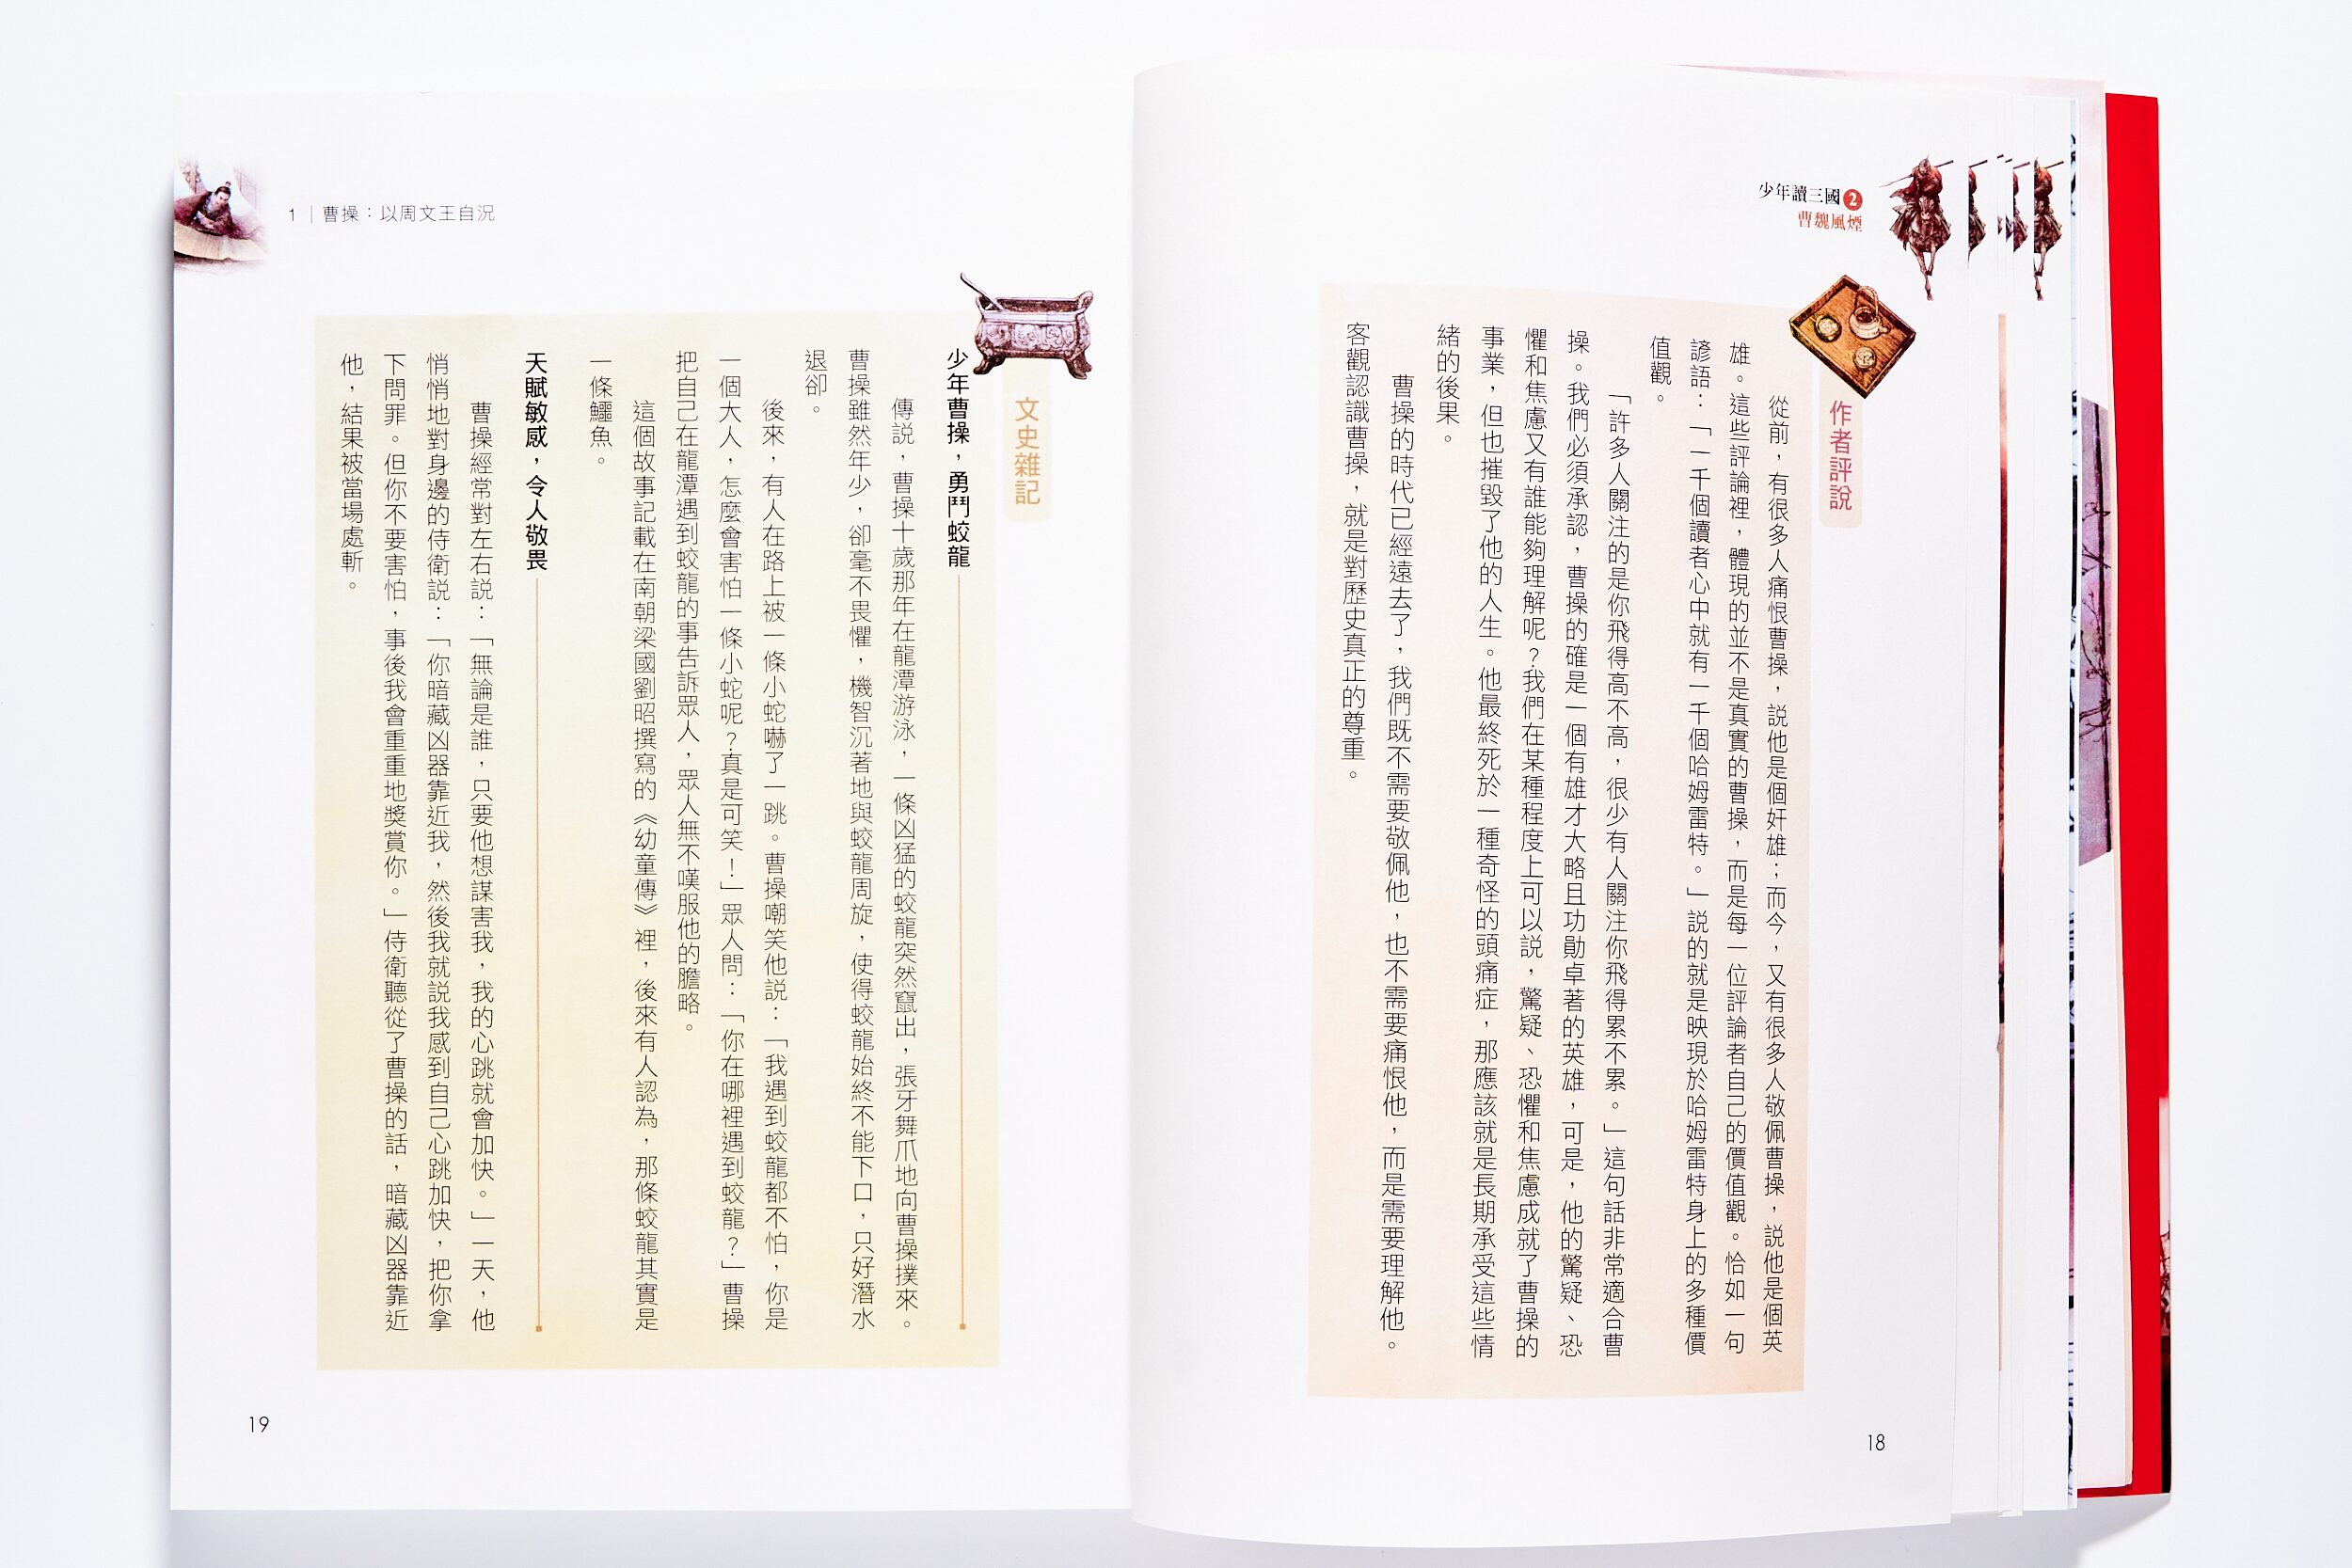 少年讀三國2
曹魏風煙
作者評說
從前，有很多人痛恨曹操，說他是個奸雄；而今，又有很多人敬佩曹操，說他是個英
雄。這些評論裡，體現的並不是真實的曹操，而是每一位評論者自己的價值觀。恰如一句
諺語：「一千個讀者心中就有一千個哈姆雷特。」說的就是映現於哈姆雷特身上的多種價
值觀。
「許多人關注的是你飛得高不高，很少有人關注你飛得累不累。」這句話非常適合曹
操。我們必須承認，曹操的確是一個有雄才大略且功勛卓著的英雄，可是，他的驚疑、恐
懼和焦慮又有誰能夠理解呢？我們在某種程度上可以說，驚疑、恐懼和焦慮成就了曹操的
事業，但也摧毀了他的人生。他最終死於一種奇怪的頭痛症，那應該就是長期承受這些情
緒的後果。
曹操的時代已經遠去了，我們既不需要敬佩他，也不需要痛恨他，而是需要理解他。
客觀認識曹操，就是對歷史真正的尊重。
18
1｜曹操：以周文王自況
文史雜記
少年曹操，勇鬥蛟龍
傳說，曹操十歲那年在龍潭游泳，一條凶猛的蛟龍突然竄出，張牙舞爪地向曹操撲來。
曹操雖然年少，卻毫不畏懼，機智沉著地與蛟龍周旋，使得蛟龍始終不能下口，只好潛水
退卻。
後來，有人在路上被一條小蛇嚇了一跳。曹操嘲笑他說：「我遇到蛟龍都不怕，你是
一個大人，怎麼會害怕一條小蛇呢？真是可笑！」眾人問：「你在哪裡遇到蛟龍？」曹操
把自己在龍潭遇到蛟龍的事告訴眾人，眾人無不嘆服他的膽略。
這個故事記載在南朝梁國劉昭撰寫的《幼童傳》裡，後來有人認為，那條蛟龍其實是
一條鱷魚。
天賦敏感，令人敬畏
曹操經常對左右說：「無論是誰，只要他想謀害我，我的心跳就會加快。」一天，他
悄悄地對身邊的侍衛說：「你暗藏凶器靠近我，然後我就說我感到自己心跳加快，把你拿
下問罪。但你不要害怕，事後我會重重地獎賞你。」侍衛聽從了曹操的話，暗藏凶器靠近
他，結果被當場處斬。
19